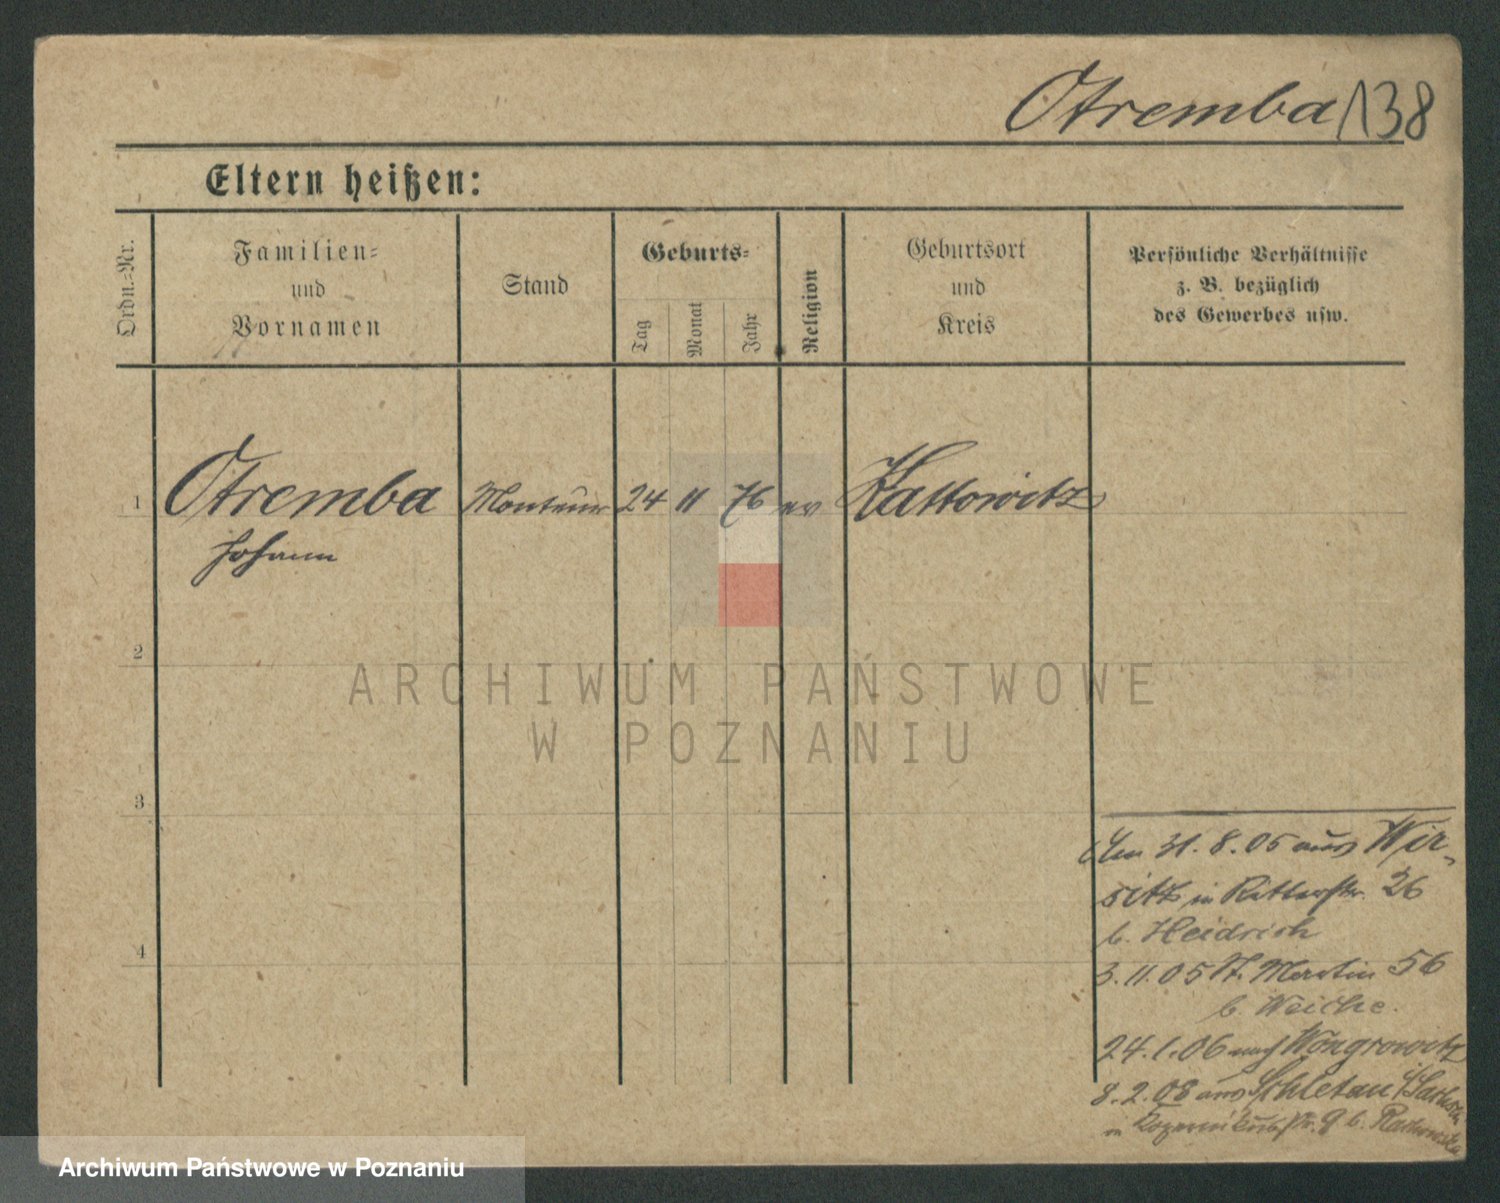 Otremba 138
Eltern heißen:
Ordn.-Nr.
Familien-
und
Vornamen
Stand
Geburts-
Tag
Monat
Jahr
Religion
Geburtsort
und
Kreis
Persönliche Verhältnisse
z. B. bezüglich
des Gewerbes usw.
1 Otremba Monteur 24 11 76 ev Kattowitz
Johann
2
3
4
Am 31.8.05 aus Wir-
sitz in Ritterstr. 26
b. Heidrich
3.11.05 St. Martin 56
b. Weiche.
24.1.06 nach Wongrowitz
8.2.08 aus Schletau i/Sachsen
in str. 9 b.
ARCHIWUM PAŃSTWOWE
W POZNANIU
Archiwum Państwowe w Poznaniu